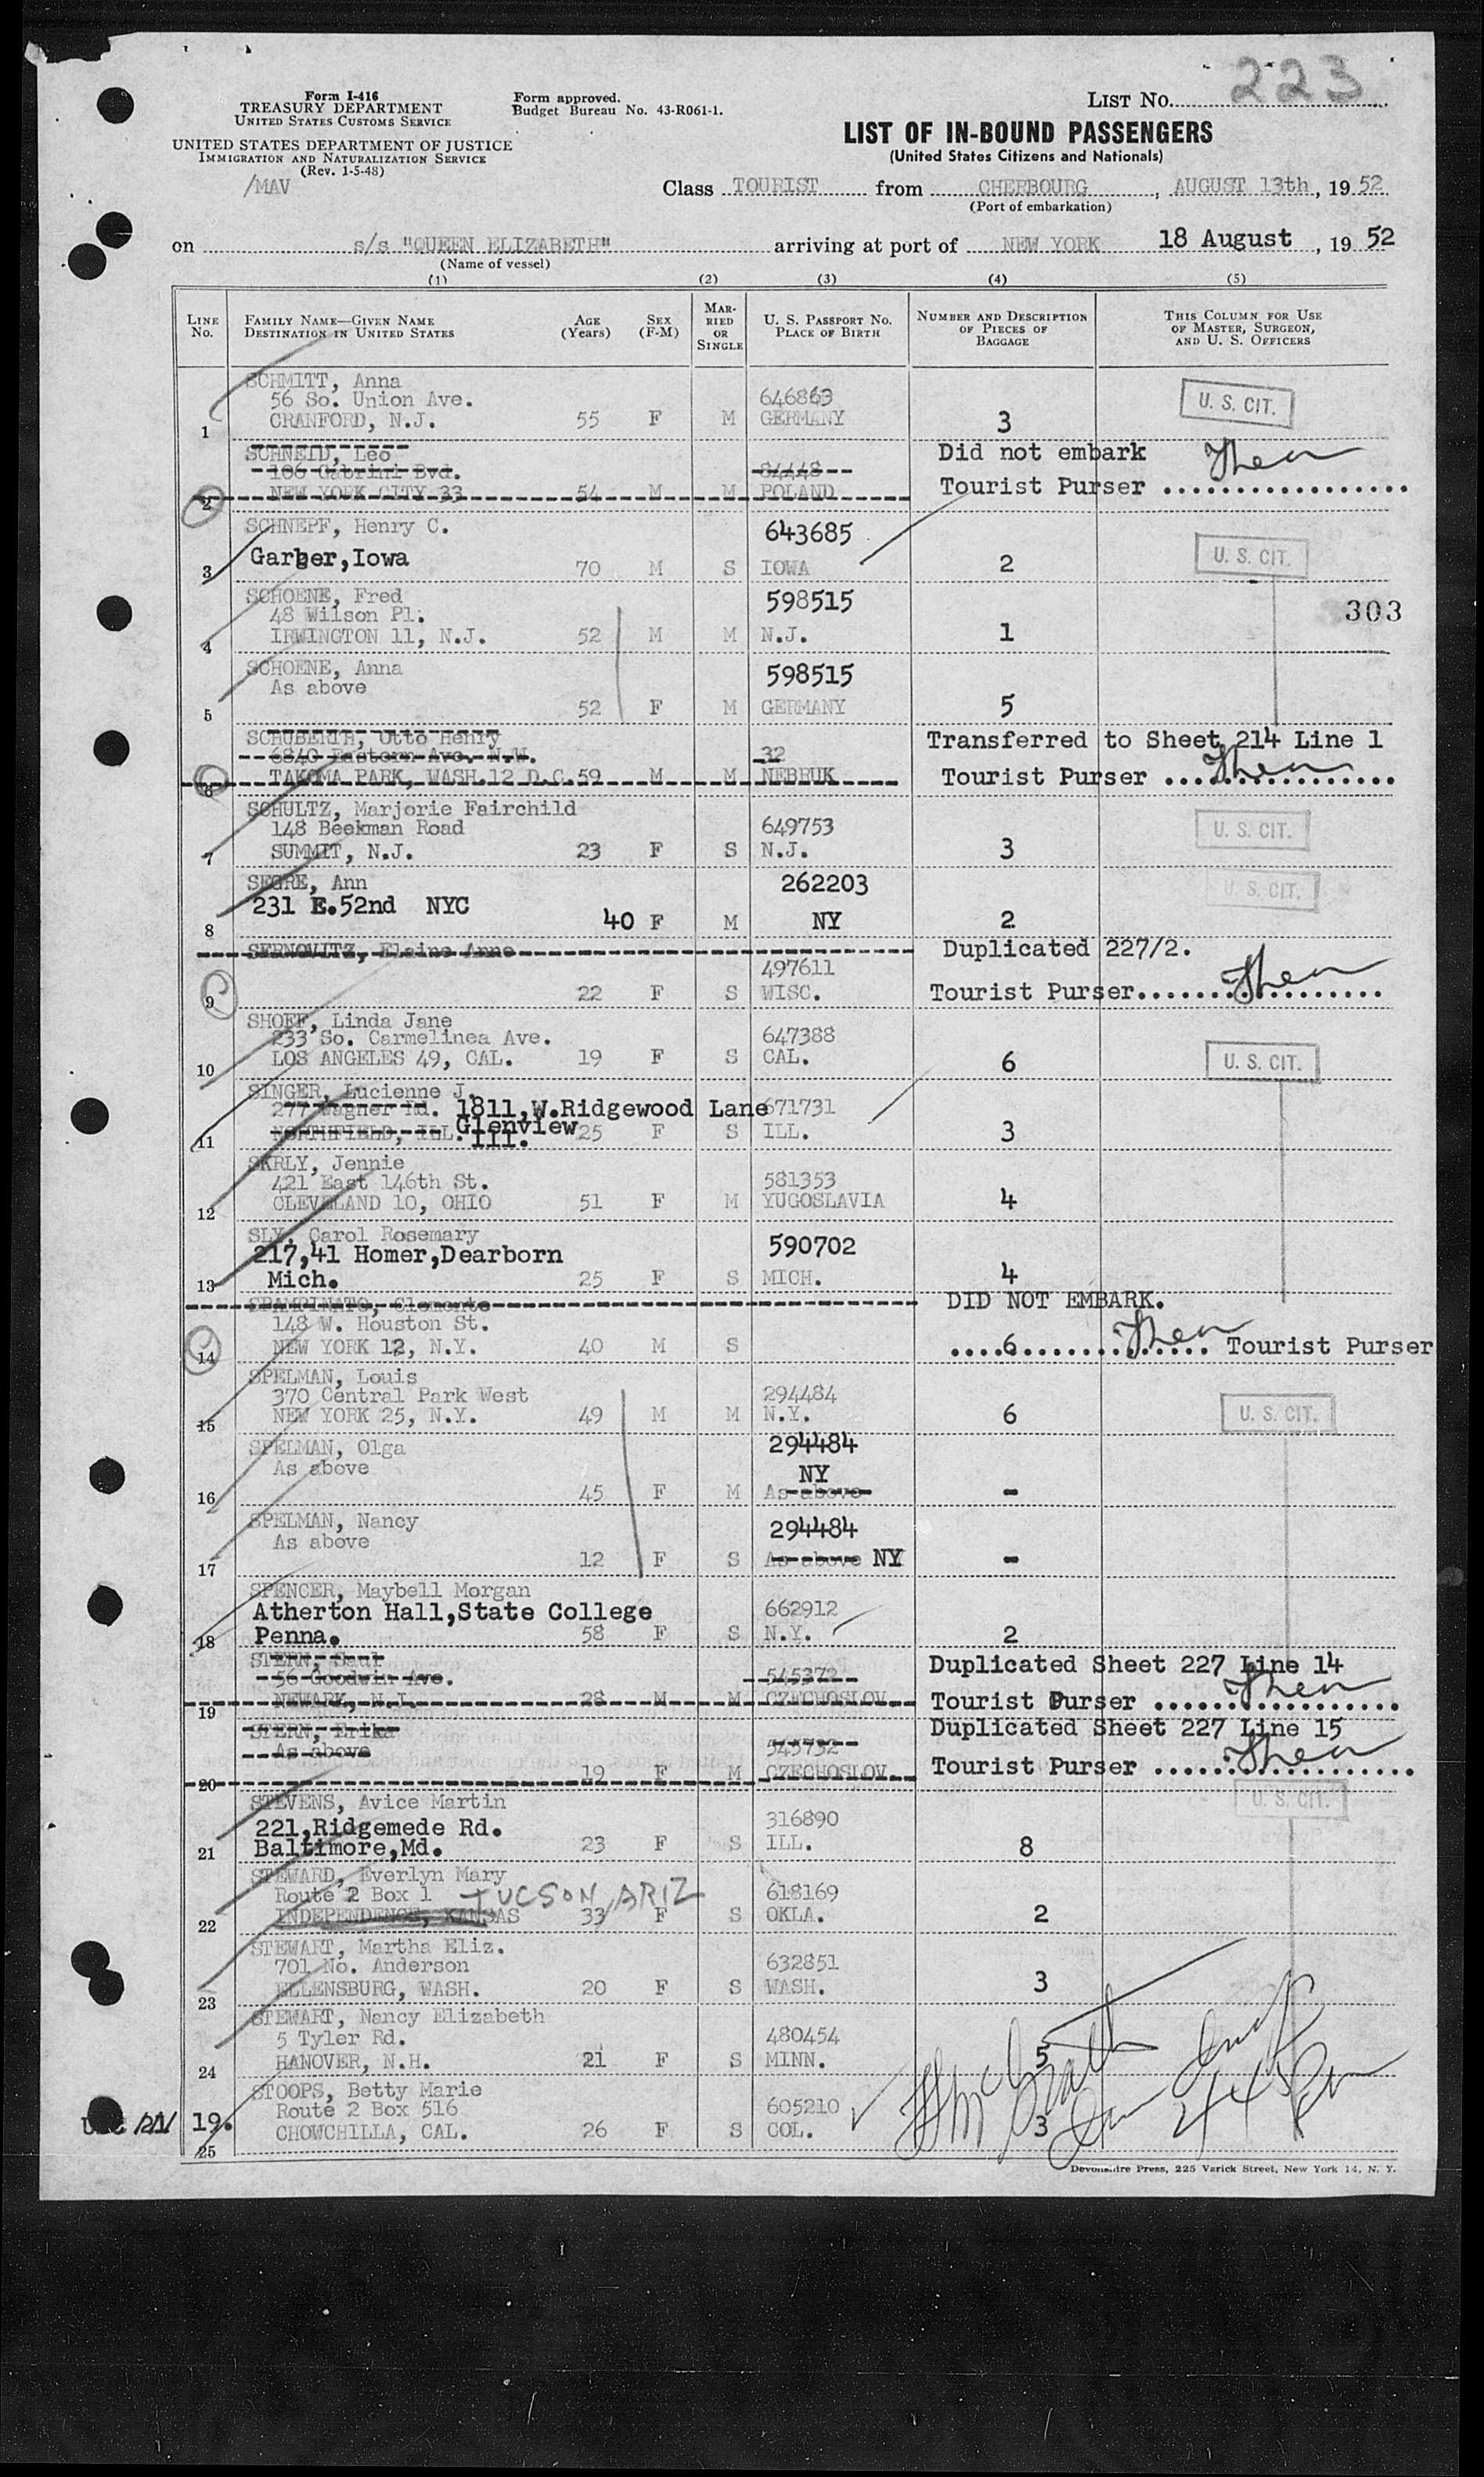 223
Form I-416
TREASURY DEPARTMENT
UNITED STATES CUSTOMS SERVICE
Form approved.
Budget Bureau No. 43-R061-1.
LIST NO.
UNITED STATES DEPARTMENT OF JUSTICE
IMMIGRATION AND NATURALIZATION SERVICE
(Rev. 1-5-48)
/MAV
LIST OF IN-BOUND PASSENGERS
(United States Citizens and Nationals)
Class TOURIST from CHERBOURG, AUGUST 13th, 1952
(Port of embarkation)
on s/s "QUEEN ELIZABETH" arriving at port of NEW YORK 18 August, 1952
(Name of vessel)
(1) (2) (3) (4) (5)
LINE No.
FAMILY NAME—GIVEN NAME
DESTINATION IN UNITED STATES
AGE (Years)
SEX (F-M)
MARRIED OR SINGLE
U. S. PASSPORT NO.
PLACE OF BIRTH
NUMBER AND DESCRIPTION OF PIECES OF BAGGAGE
THIS COLUMN FOR USE OF MASTER, SURGEON, AND U. S. OFFICERS
SCHMITT, Anna
56 So. Union Ave. 646863 U. S. CIT.
1 CRANFORD, N.J. 55 F M GERMANY 3
SCHNEID, Leo Did not embark
106 Cabrini Bvd. 84448
2 NEW YORK CITY 33 54 M M POLAND Tourist Purser
SCHNEPF, Henry C. 643685
Garber,Iowa U. S. CIT.
3 70 M S IOWA 2
SCHOENE, Fred 598515
48 Wilson Pl. 303
4 IRVINGTON 11, N.J. 52 M M N.J. 1
SCHOENE, Anna 598515
As above
5 52 F M GERMANY 5
SCHUBERTH, Otto Henry Transferred to Sheet 214 Line 1
6840 Eastern Ave. N.W. 32
6 TAKOMA PARK, WASH.12 D.C. 59 M M NEBRUK Tourist Purser
SCHULTZ, Marjorie Fairchild
148 Beekman Road 649753 U. S. CIT.
7 SUMMIT, N.J. 23 F S N.J. 3
SEGRE, Ann 262203 U. S. CIT.
231 E.52nd NYC
8 40 F M NY 2
SERNOVITZ, Elaine Anne Duplicated 227/2.
497611
9 22 F S WISC. Tourist Purser
SHOFF, Linda Jane
233 So. Carmelinea Ave. 647388
10 LOS ANGELES 49, CAL. 19 F S CAL. 6 U. S. CIT.
SINGER, Lucienne J.
277 Wagner Rd. 1811,W.Ridgewood Lane 671731
11 NORTHFIELD, ILL. Glenview Ill. 25 F S ILL. 3
SKRLY, Jennie
421 East 146th St. 581353
12 CLEVELAND 10, OHIO 51 F M YUGOSLAVIA 4
SLY, Carol Rosemary
217,41 Homer,Dearborn 590702
13 Mich. 25 F S MICH. 4
SPAMPINATO, Clemente DID NOT EMBARK.
148 W. Houston St.
14 NEW YORK 12, N.Y. 40 M S 6 Tourist Purser
SPELMAN, Louis
370 Central Park West 294484
15 NEW YORK 25, N.Y. 49 M M N.Y. 6 U. S. CIT.
SPELMAN, Olga 294484
As above NY
16 45 F M As above -
SPELMAN, Nancy 294484
As above
17 12 F S As above NY -
SPENCER, Maybell Morgan
Atherton Hall,State College 662912
18 Penna. 58 F S N.Y. 2
STERN, Saul Duplicated Sheet 227 Line 14
56 Goodwin Ave. 545372
19 NEWARK, N.J. 28 M M CZECHOSLOV. Tourist Purser
STERN, Erika Duplicated Sheet 227 Line 15
As above
20 19 F M CZECHOSLOV. Tourist Purser
STEVENS, Avice Martin U. S. CIT.
221,Ridgemede Rd. 316890
21 Baltimore,Md. 23 F S ILL. 8
STEWARD, Everlyn Mary
Route 2 Box 1 TUCSON, ARIZ 618169
22 INDEPENDENCE, KANSAS 33 F S OKLA. 2
STEWART, Martha Eliz.
701 No. Anderson 632851
23 ELLENSBURG, WASH. 20 F S WASH. 3
STEWART, Nancy Elizabeth
5 Tyler Rd. 480454
24 HANOVER, N.H. 21 F S MINN. 5
STOOPS, Betty Marie
Route 2 Box 516 605210
19.
25 CHOWCHILLA, CAL. 26 F S COL. 3
Devonshire Press, 225 Varick Street, New York 14, N. Y.